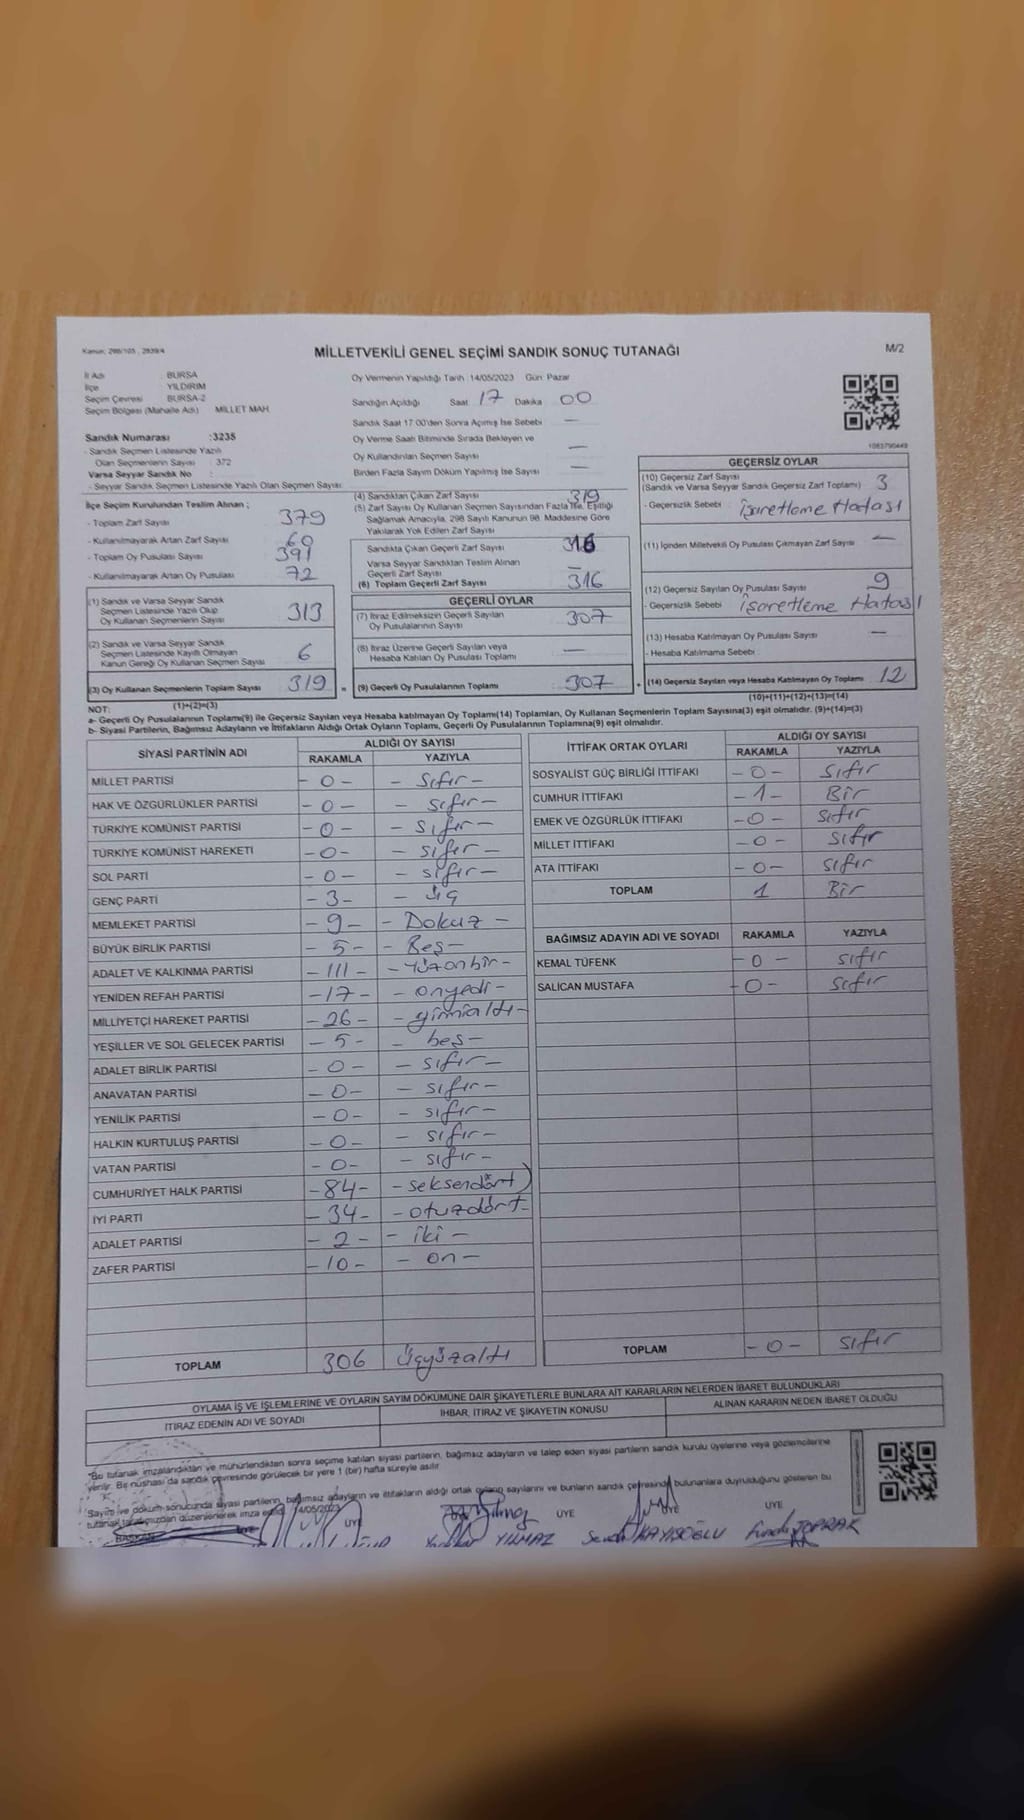 Kanun: 298/105 , 2839/4
MİLLETVEKİLİ GENEL SEÇİMİ SANDIK SONUÇ TUTANAĞI
M/2
İl Adı : BURSA
İlçe YILDIRIM
Seçim Çevresi BURSA-2
Seçim Bölgesi (Mahalle Adı) MİLLET MAH.
Oy Vermenin Yapıldığı Tarih :14/05/2023 Gün: Pazar
Sandığın Açıldığı Saat 17 Dakika 00
Sandık Saat 17:00'den Sonra Açılmış İse Sebebi —
Oy Verme Saati Bitiminde Sırada Bekleyen ve
Oy Kullandırılan Seçmen Sayısı —
Birden Fazla Sayım Döküm Yapılmış İse Sayısı —
Sandık Numarası :3235
- Sandık Seçmen Listesinde Yazılı
Olan Seçmenlerin Sayısı : 372
Varsa Seyyar Sandık No :
- Seyyar Sandık Seçmen Listesinde Yazılı Olan Seçmen Sayısı:
1083790449
İlçe Seçim Kurulundan Teslim Alınan ;
- Toplam Zarf Sayısı 379
- Kullanılmayarak Artan Zarf Sayısı 60
- Toplam Oy Pusulası Sayısı 391
- Kullanılmayarak Artan Oy Pusulası 72
(1) Sandık ve Varsa Seyyar Sandık
Seçmen Listesinde Yazılı Olup
Oy Kullanan Seçmenlerin Sayısı 313
(2) Sandık ve Varsa Seyyar Sandık
Seçmen Listesinde Kayıtlı Olmayan
Kanun Gereği Oy Kullanan Seçmen Sayısı 6
(3) Oy Kullanan Seçmenlerin Toplam Sayısı 319 =
(1)+(2)=(3)
(4) Sandıktan Çıkan Zarf Sayısı 319
(5) Zarf Sayısı Oy Kullanan Seçmen Sayısından Fazla İse, Eşitliği
Sağlamak Amacıyla, 298 Sayılı Kanunun 98. Maddesine Göre
Yakılarak Yok Edilen Zarf Sayısı
Sandıkta Çıkan Geçerli Zarf Sayısı 316
Varsa Seyyar Sandıktan Teslim Alınan
Geçerli Zarf Sayısı —
(6) Toplam Geçerli Zarf Sayısı 316
GEÇERLİ OYLAR
(7) İtiraz Edilmeksizin Geçerli Sayılan
Oy Pusulalarının Sayısı 307
(8) İtiraz Üzerine Geçerli Sayılan veya
Hesaba Katılan Oy Pusulası Toplamı —
(9) Geçerli Oy Pusulalarının Toplamı 307 +
GEÇERSİZ OYLAR
(10) Geçersiz Zarf Sayısı
(Sandık ve Varsa Seyyar Sandık Geçersiz Zarf Toplamı) 3
- Geçersizlik Sebebi : işaretleme Hatası
(11) İçinden Milletvekili Oy Pusulası Çıkmayan Zarf Sayısı —
(12) Geçersiz Sayılan Oy Pusulası Sayısı 9
- Geçersizlik Sebebi işaretleme Hatası
(13) Hesaba Katılmayan Oy Pusulası Sayısı —
- Hesaba Katılmama Sebebi :
(14) Geçersiz Sayılan veya Hesaba Katılmayan Oy Toplamı 12
(10)+(11)+(12)+(13)=(14)
NOT:
a- Geçerli Oy Pusulalarının Toplamı(9) ile Geçersiz Sayılan veya Hesaba katılmayan Oy Toplamı(14) Toplamları, Oy Kullanan Seçmenlerin Toplam Sayısına(3) eşit olmalıdır. (9)+(14)=(3)
b- Siyasi Partilerin, Bağımsız Adayların ve İttifakların Aldığı Ortak Oyların Toplamı, Geçerli Oy Pusulalarının Toplamına(9) eşit olmalıdır.
SİYASİ PARTİNİN ADI ALDIĞI OY SAYISI
RAKAMLA YAZIYLA
MİLLET PARTİSİ - 0 - - sıfır -
HAK VE ÖZGÜRLÜKLER PARTİSİ - 0 - - sıfır -
TÜRKİYE KOMÜNİST PARTİSİ - 0 - - sıfır -
TÜRKİYE KOMÜNİST HAREKETİ - 0 - - sıfır -
SOL PARTİ - 0 - - sıfır -
GENÇ PARTİ - 3 - - üç
MEMLEKET PARTİSİ - 9 - - Dokuz -
BÜYÜK BİRLİK PARTİSİ - 5 - - Beş -
ADALET VE KALKINMA PARTİSİ - 111 - - Yüzonbir -
YENİDEN REFAH PARTİSİ - 17 - - onyedi -
MİLLİYETÇİ HAREKET PARTİSİ - 26 - - yirmialtı -
YEŞİLLER VE SOL GELECEK PARTİSİ - 5 - - beş -
ADALET BİRLİK PARTİSİ - 0 - - sıfır -
ANAVATAN PARTİSİ - 0 - - sıfır -
YENİLİK PARTİSİ - 0 - - sıfır -
HALKIN KURTULUŞ PARTİSİ - 0 - - sıfır -
VATAN PARTİSİ - 0 - - sıfır -
CUMHURİYET HALK PARTİSİ - 84 - - seksendört
İYİ PARTİ - 34 - - otuzdört -
ADALET PARTİSİ - 2 - - iki -
ZAFER PARTİSİ - 10 - - on -
TOPLAM 306 üçyüzaltı
İTTİFAK ORTAK OYLARI ALDIĞI OY SAYISI
RAKAMLA YAZIYLA
SOSYALİST GÜÇ BİRLİĞİ İTTİFAKI - 0 - sıfır
CUMHUR İTTİFAKI - 1 - Bir
EMEK VE ÖZGÜRLÜK İTTİFAKI - 0 - sıfır
MİLLET İTTİFAKI - 0 - sıfır
ATA İTTİFAKI - 0 - sıfır
TOPLAM 1 Bir
BAĞIMSIZ ADAYIN ADI VE SOYADI RAKAMLA YAZIYLA
KEMAL TÜFENK - 0 - sıfır
SALİCAN MUSTAFA - 0 - sıfır
TOPLAM - 0 - sıfır
OYLAMA İŞ VE İŞLEMLERİNE VE OYLARIN SAYIM DÖKÜMÜNE DAİR ŞİKAYETLERLE BUNLARA AİT KARARLARIN NELERDEN İBARET BULUNDUKLARI
İTİRAZ EDENİN ADI VE SOYADI İHBAR, İTİRAZ VE ŞİKAYETİN KONUSU ALINAN KARARIN NEDEN İBARET OLDUĞU
"Bu tutanak imzalandıktan ve mühürlendikten sonra seçime katılan siyasi partilerin, bağımsız adayların ve talep eden siyasi partilerin sandık kurulu üyelerine veya gözlemcilerine
verilir. Bir nüshası da sandık çevresinde görülecek bir yere 1 (bir) hafta süreyle asılır.
Sayım ve döküm sonucunda siyasi partilerin, bağımsız adayların ve ittifakların aldığı ortak oyların sayılarını ve bunların sandık çevresinde bulunanlara duyurulduğunu gösteren bu
tutanak tarafımızdan düzenlenerek imza edildi. 14/05/2023
BAŞKAN ÜYE ÜYE ÜYE ÜYE
YILMAZ KAYISOĞLU TOPRAK